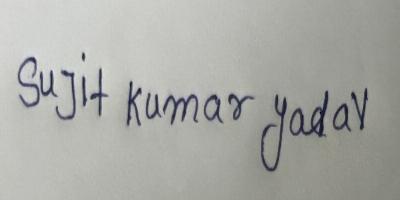 Sujit Kumar Yadav